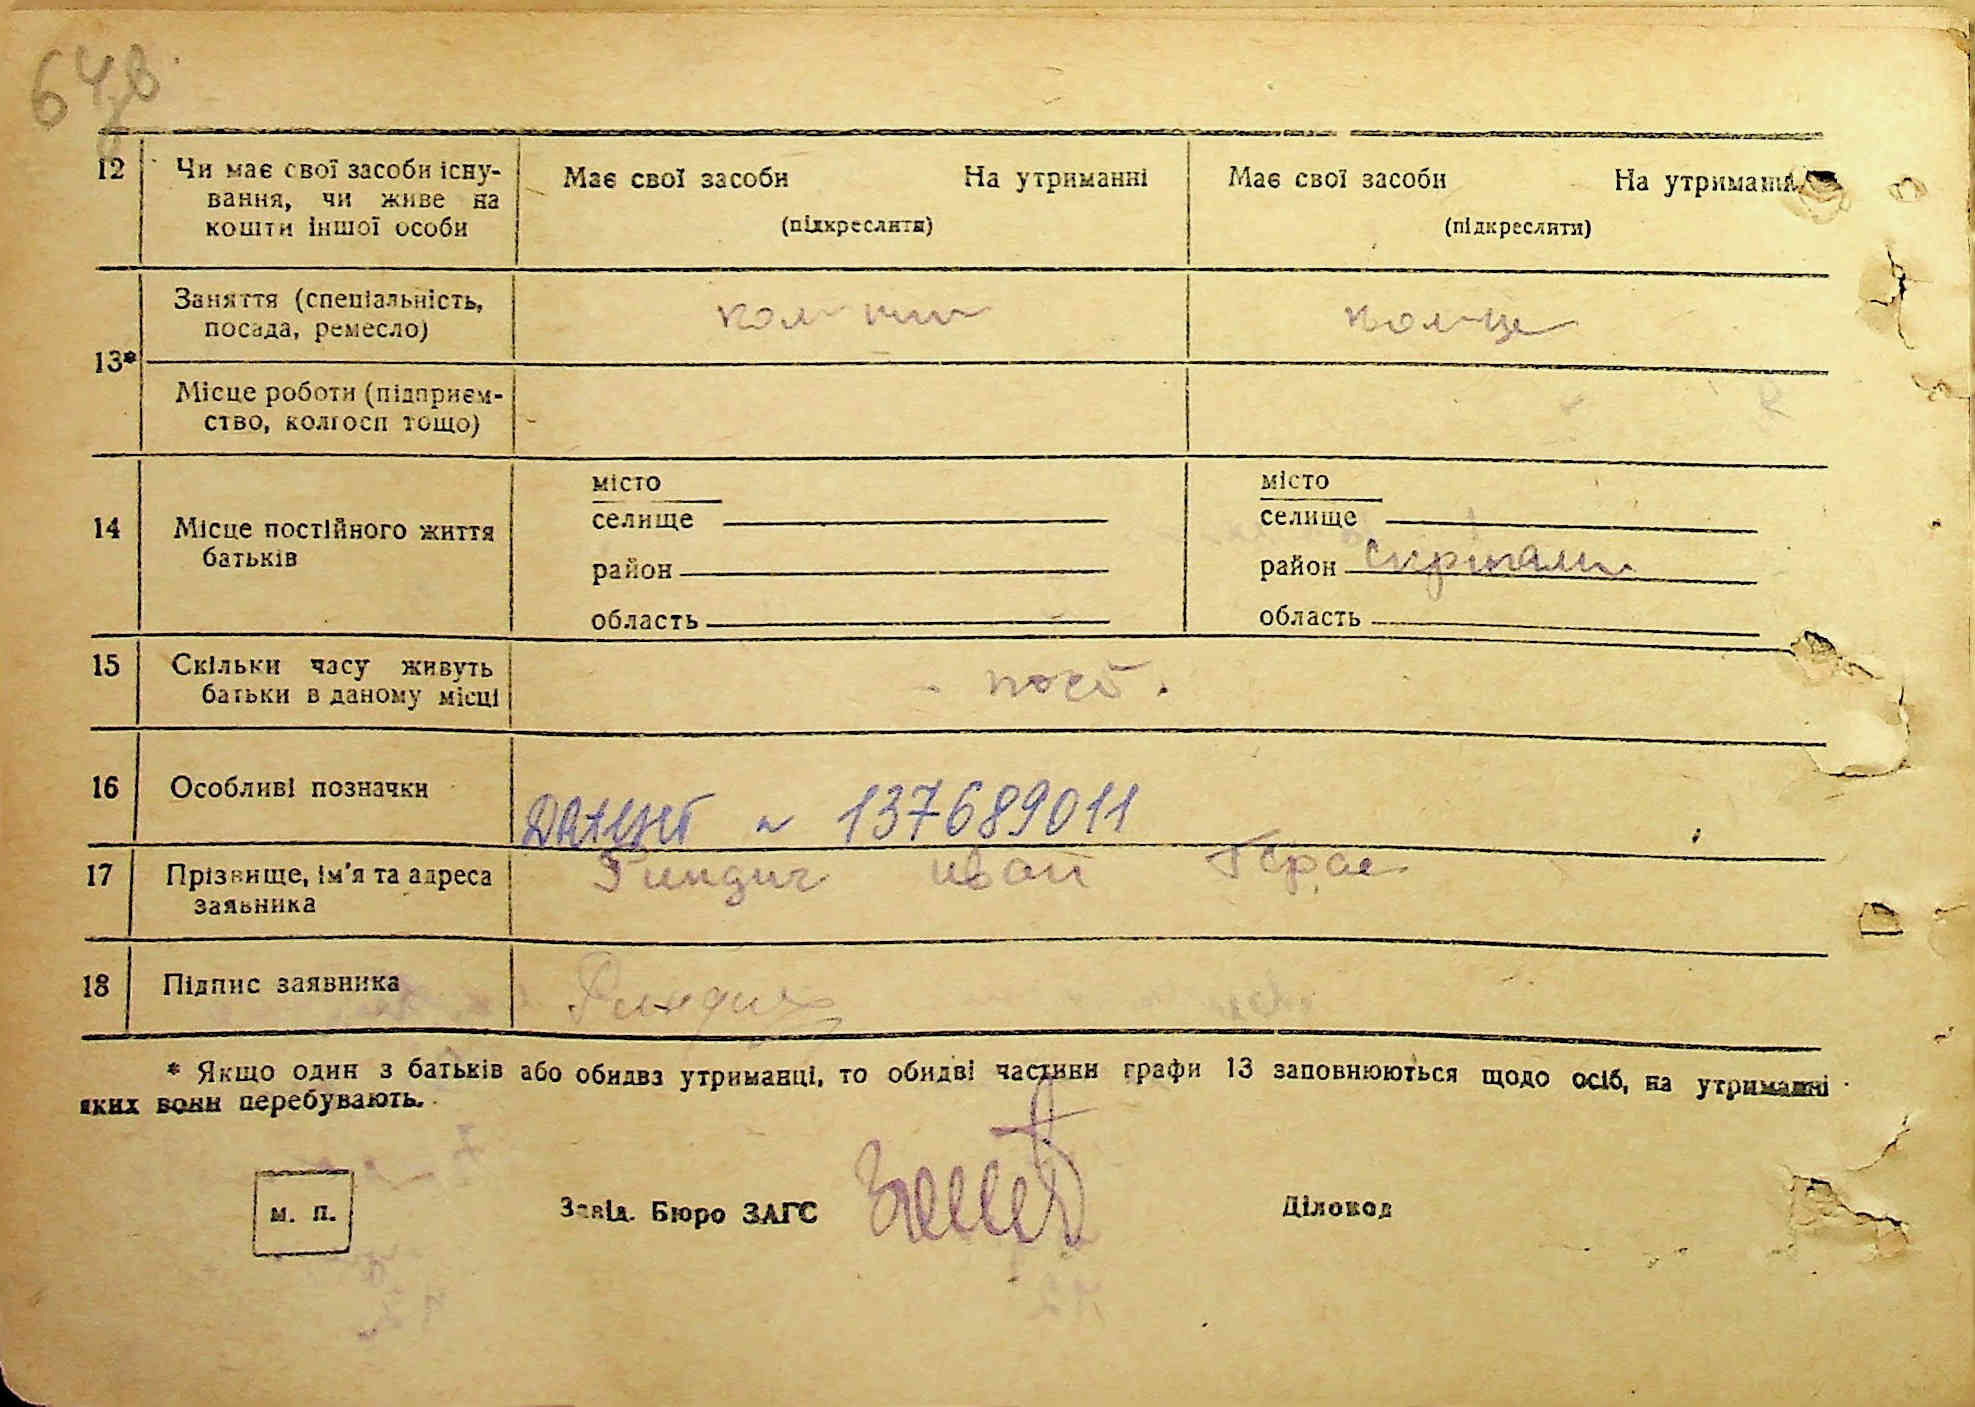 64
12 Чи має свої засоби існу-
вання, чи живе на
кошти іншої особи
Має свої засоби На утриманні
(підкреслити)
Має свої засоби На утриманні
(підкреслити)
13*
Заняття (спеціальність,
посада, ремесло)
Місце роботи (підприєм-
ство, колгосп тощо)
14 Місце постійного життя
батьків
місто
селище
район
область
місто
селище
район
область
15 Скільки часу живуть
батьки в даному місці
16 Особливі позначки
137689011
17 Прізвище, ім'я та адреса
заявника
Гиндич Иван Герас
18 Підпис заявника
Гиндич
* Якщо один з батьків або обидва утриманці, то обидві частини графи 13 заповнюються щодо осіб, на утриманні
яких вони перебувають.
м. п.
Завід. Бюро ЗАГС
Діловод